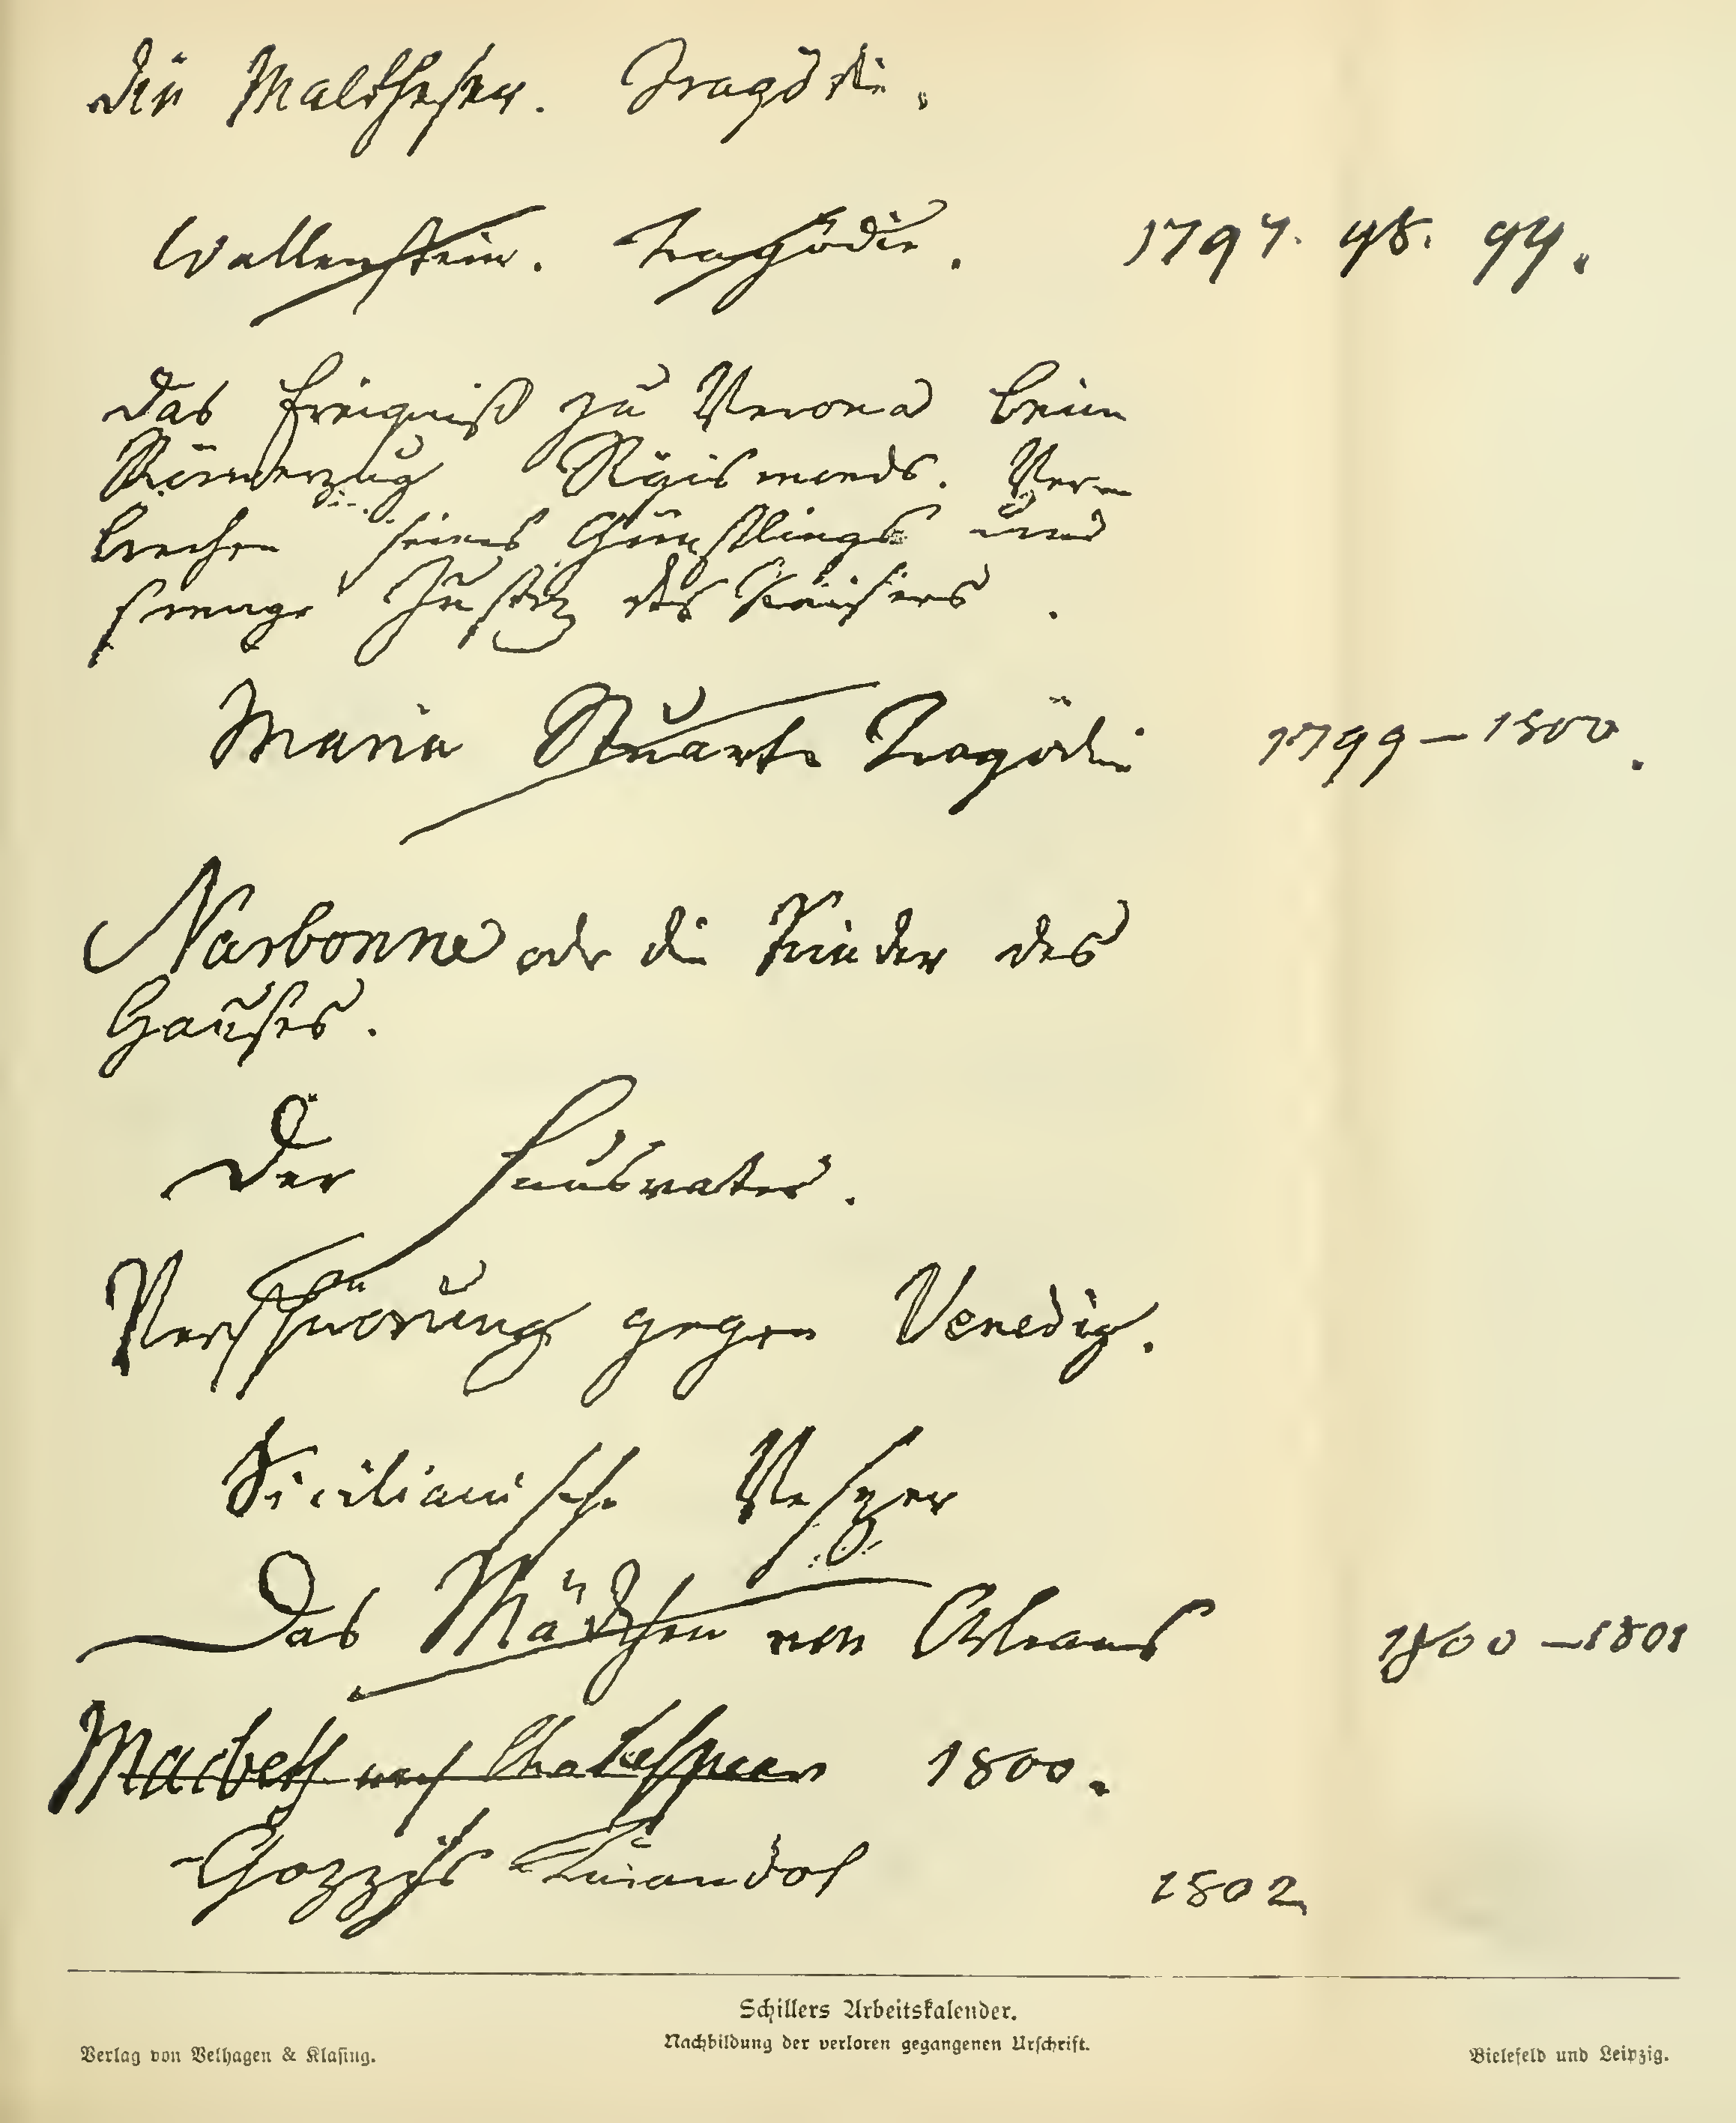 Die Maltheser. Tragödie.
Wallenstein. Tragödie. 1797. 98. 99.
Das Ereigniß zu Verona beim
Römerzug Sigismonds. Ver-
brechen seines Günstlings und
strenge Justiz des Kaisers.
Maria Stuart. Tragödie 1799 – 1800.
Narbonne oder die Kinder des
Hauses.
Der Hausvater.
Verschwörung gegen Venedig.
Sicilianische Vesper
Das Mädchen von Orleans 1800 – 1801
Macbeth nach Shakespear 1800.
Gozzis Turandot 1802
Schillers Arbeitskalender.
Nachbildung der verloren gegangenen Urschrift.
Verlag von Velhagen & Klasing. Bielefeld und Leipzig.